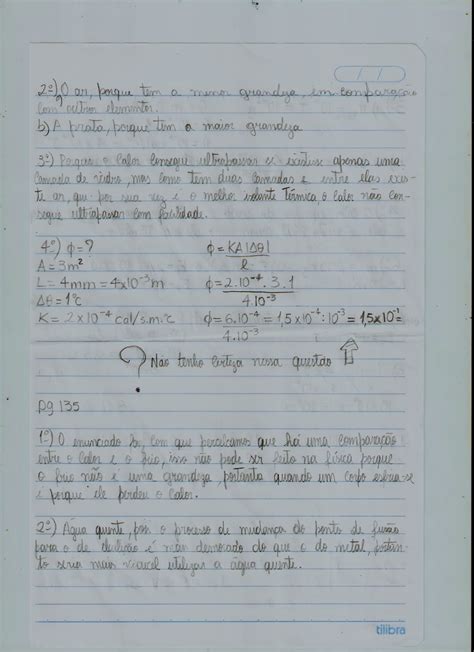 2º) O ar, porque tem a menor grandeza, em comparação
com outros elementos.
b) A prata, porque tem a maior grandeza
3º) Porque o calor consegue ultrapassar se existisse apenas uma
camada de vidro, mas como tem duas camadas e entre elas exis-
te ar, que por sua vez é o melhor isolante térmico o calor não con-
segue ultrapassar com facilidade.
4º) ϕ=? ϕ=KA|Δθ|
A=3m² l
L=4mm=4x10⁻³m ϕ=2.10⁻⁴.3.1
Δθ=1ºC 4.10⁻³
K=2x10⁻⁴ cal/s.m.ºC ϕ=6.10⁻⁴=1,5x10⁻⁴:10⁻³=1,5x10⁻¹=
4.10⁻³
? Não tenho certeza nessa questão
pg 135
1º) O enunciado faz com que percebamos que há uma comparação
entre o calor e o frio, isso não pode ser feito na física porque
o frio não é uma grandeza, portanto quando um corpo esfria-se
é porque ele perdeu o calor.
2º) Água quente, pois o processo de mudança do ponto de fusão
para o de ebulição é mais demorado do que o do metal, portan-
to seria mais viável utilizar a água quente.
tilibra